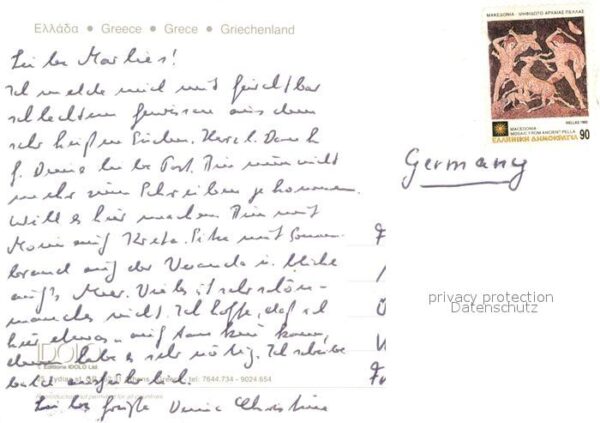 Ελλάδα • Greece • Grece • Griechenland
Liebe Marlies!
Ich melde mich mit furchtbar
schlechtem Gewissen aus dem
sehr heißen Süden. Herzl. Dank
f. Deine liebe Post. Bin nur nicht
mehr zum Schreiben gekommen.
Will es hier machen. Bin mit
Moni auf Kreta. Sitze mit Sonnen-
brand auf der Veranda u. blicke
auf's Meer. Vieles ist sehr schön -
manches nicht. Ich hoffe, daß ich
hier etwas auftanken kann,
denn habe es sehr nötig. Ich schreibe
bald ausführlich.
Liebe Grüße Deine Christine
IDOLO
Editions IDOLO Ltd.
Athens, Greece, tel: 7644.734 - 9024.654
ΜΑΚΕΔΟΝΙΑ - ΨΗΦΙΔΩΤΟ ΑΡΧΑΙΑΣ ΠΕΛΛΑΣ
HELLAS 1992
MACEDONIA
MOSAIC FROM ANCIENT PELLA
ΕΛΛΗΝΙΚΗ ΔΗΜΟΚΡΑΤΙΑ 90
Germany
privacy protection
Datenschutz